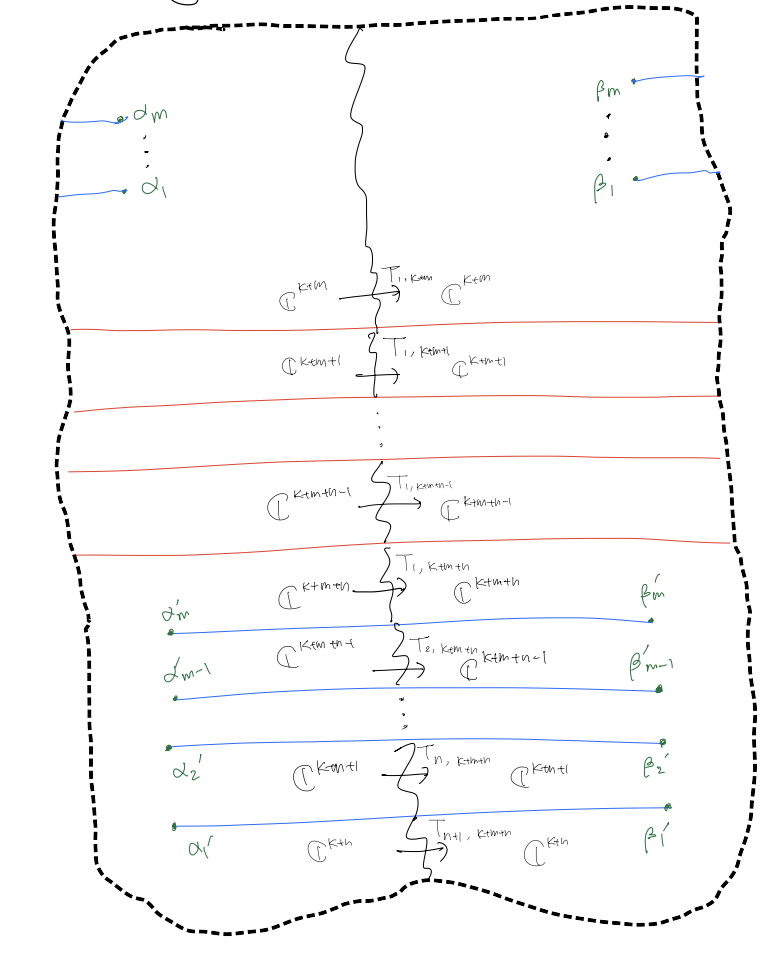 αm βm
⋮ ⋮
α1 β1
ℂ^{k+m} T_{1, k+m} ℂ^{k+m}
ℂ^{k+m+1} T_{1, k+m+1} ℂ^{k+m+1}
⋮
ℂ^{k+m+n-1} T_{1, k+m+n-1} ℂ^{k+m+n-1}
ℂ^{k+m+n} T_{1, k+m+n} ℂ^{k+m+n}
α'm β'm
ℂ^{k+m+n-1} T_{2, k+m+n} ℂ^{k+m+n-1}
α'm-1 β'm-1
⋮
ℂ^{k+n+1} T_{n, k+m+n} ℂ^{k+n+1}
α2' β2'
ℂ^{k+n} T_{n+1, k+m+n} ℂ^{k+n}
α1' β1'